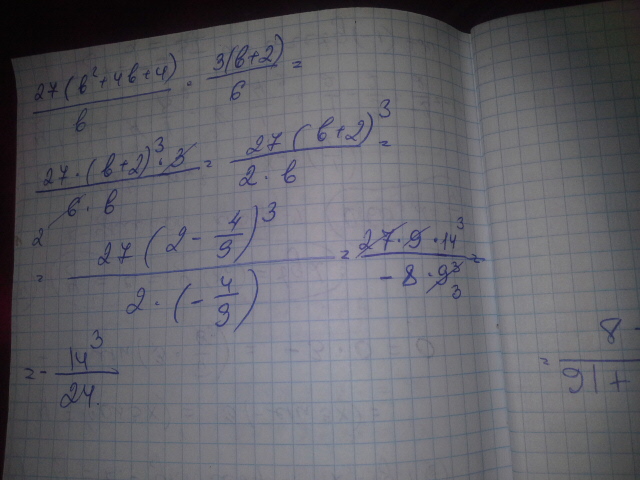 27(b²+4b+4)/b · 3(b+2)/6 =
27·(b+2)³·3/6·b = 27(b+2)³/2·b =
2
= 27(2-4/9)³/2·(-4/9) = 27·9·14³/-8·9³ =
3
= -14³/24.
8
= 91+